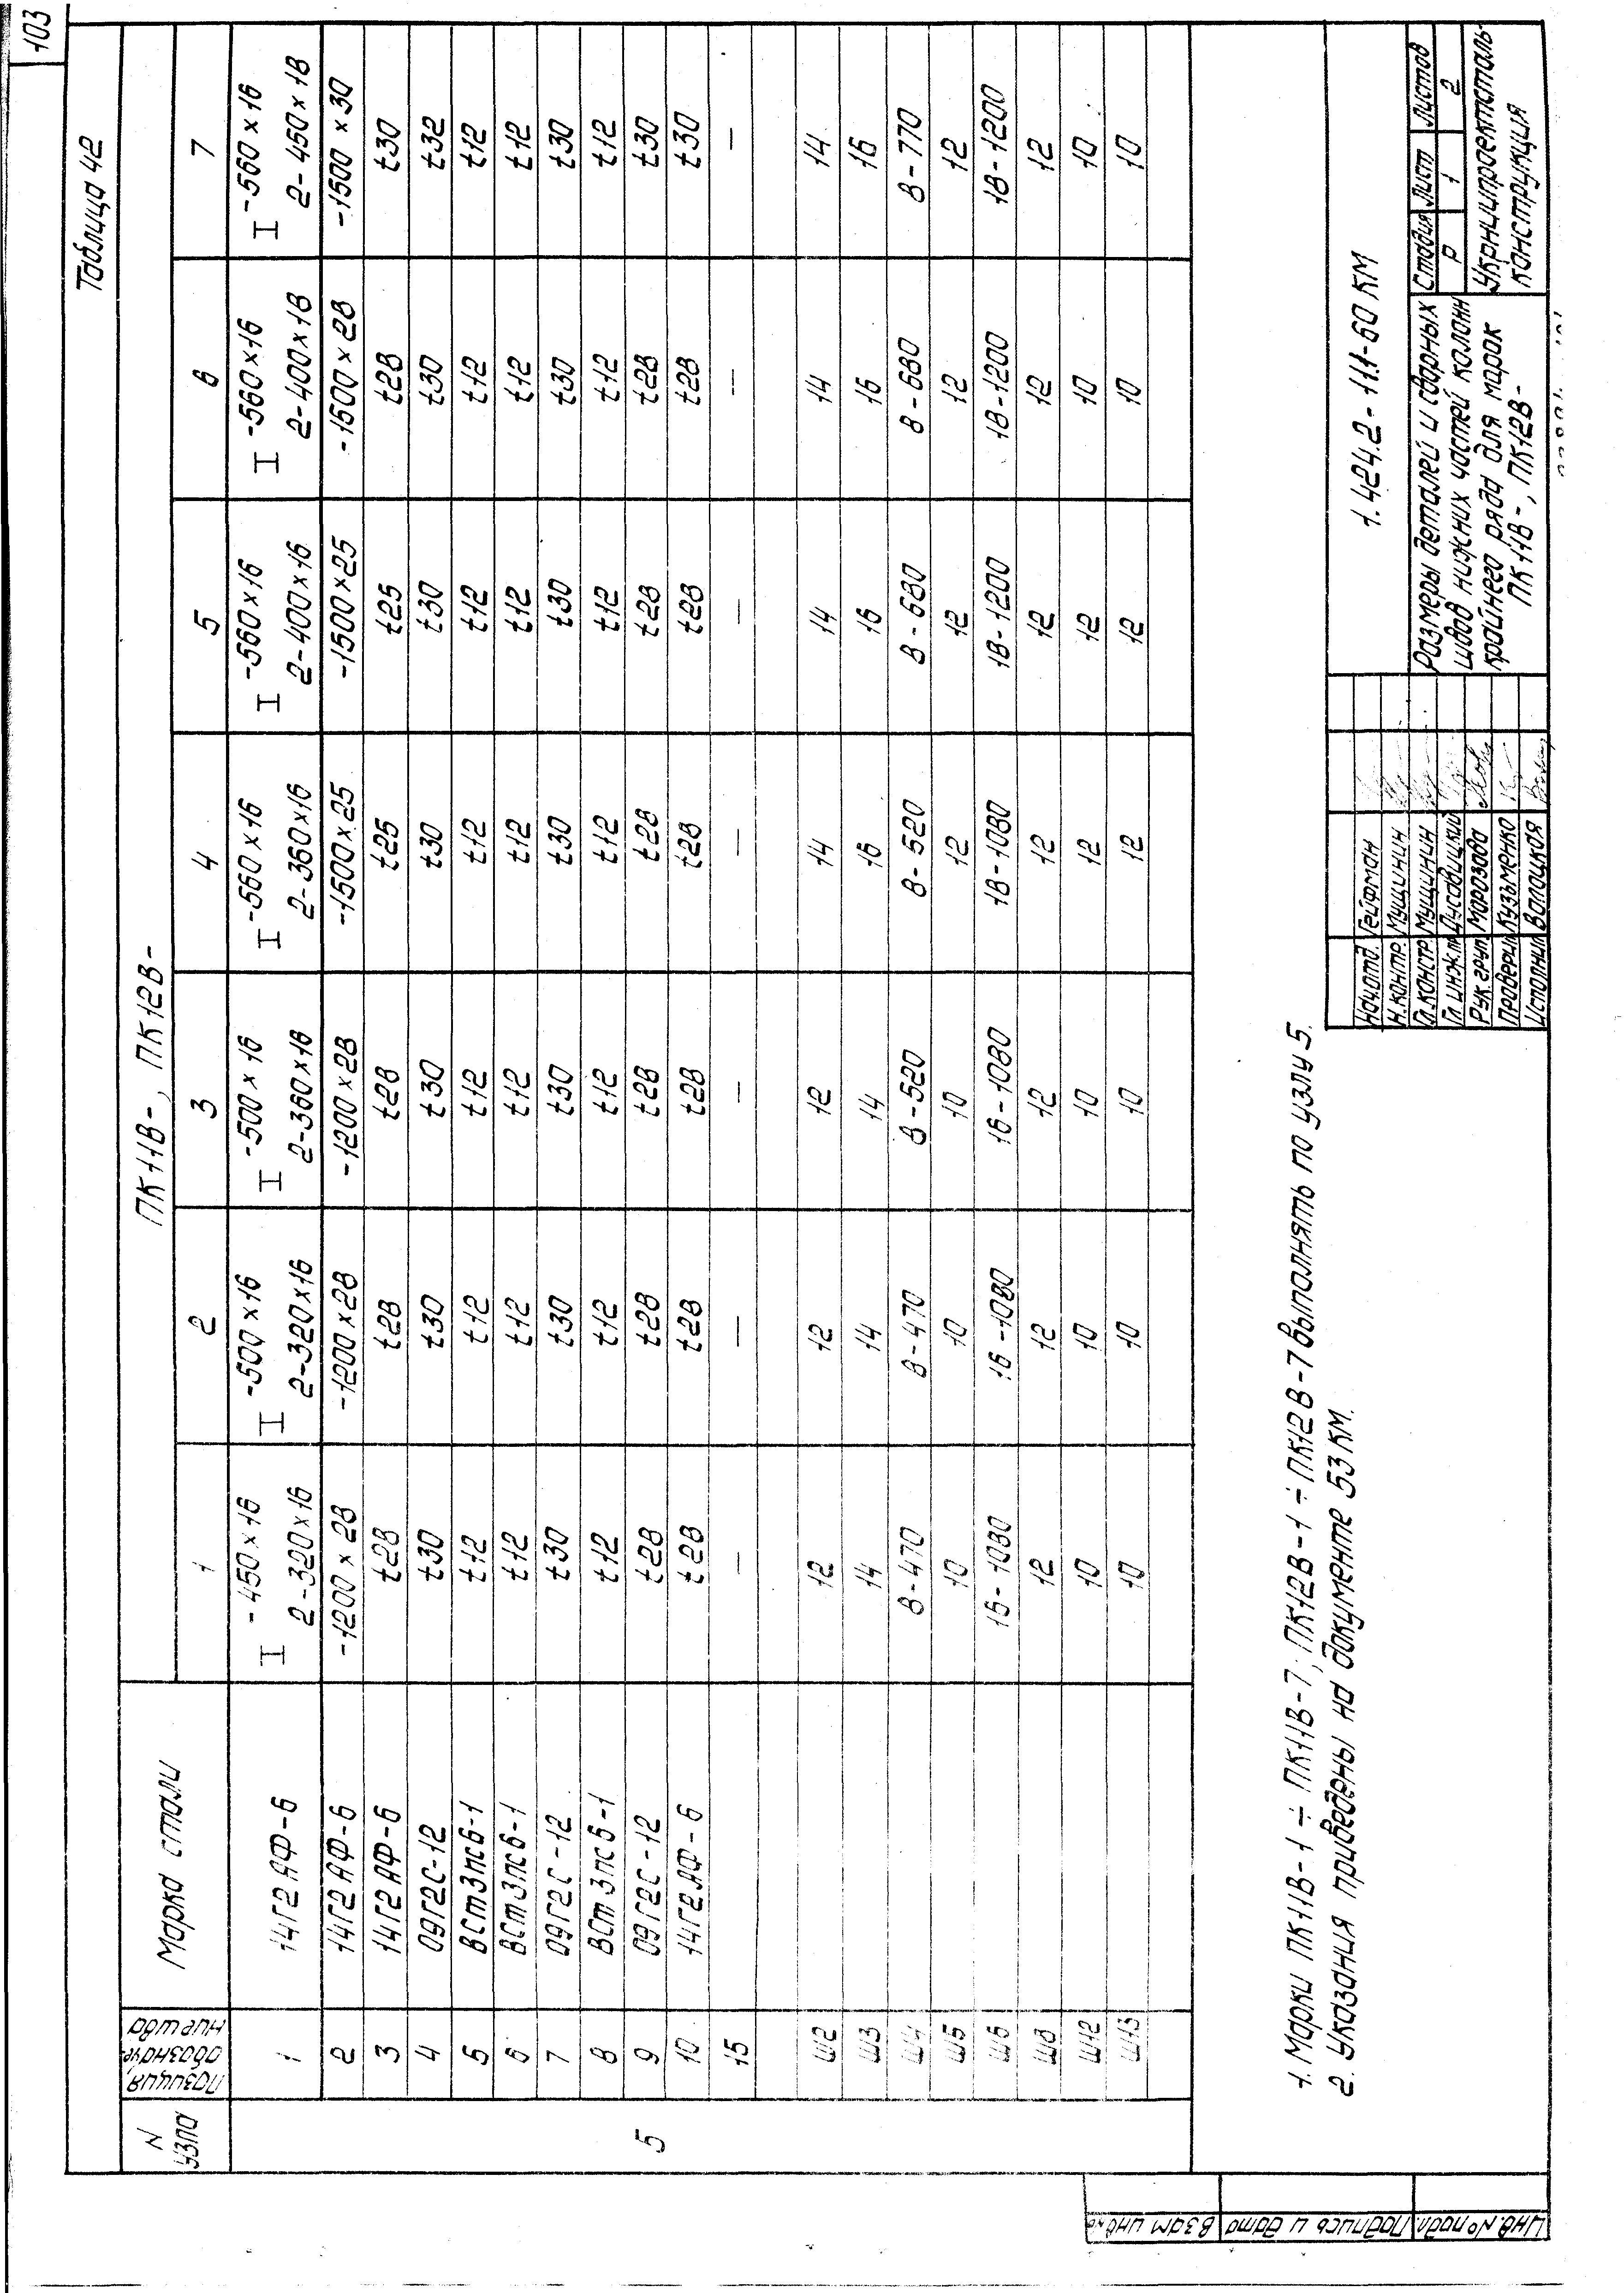 103
Таблица 42
N узла | Позиция, обозначение шва | Марка стали | ПК11В-, ПК12В-
1 | 2 | 3 | 4 | 5 | 6 | 7
5
1 | 14Г2АФ-6 | I -450×16 2-320×16 | I -500×16 2-320×16 | I -500×16 2-360×16 | I -560×16 2-360×16 | I -560×16 2-400×16 | I -560×16 2-400×18 | I -560×16 2-450×18
2 | 14Г2АФ-6 | -1200×28 | -1200×28 | -1200×28 | -1500×25 | -1500×25 | -1500×28 | -1500×30
3 | 14Г2АФ-6 | t28 | t28 | t28 | t25 | t25 | t28 | t30
4 | 09Г2С-12 | t30 | t30 | t30 | t30 | t30 | t30 | t32
5 | ВСт3пс6-1 | t12 | t12 | t12 | t12 | t12 | t12 | t12
6 | ВСт3пс6-1 | t12 | t12 | t12 | t12 | t12 | t12 | t12
7 | 09Г2С-12 | t30 | t30 | t30 | t30 | t30 | t30 | t30
8 | ВСт3пс6-1 | t12 | t12 | t12 | t12 | t12 | t12 | t12
9 | 09Г2С-12 | t28 | t28 | t28 | t28 | t28 | t28 | t30
10 | 14Г2АФ-6 | t28 | t28 | t28 | t28 | t28 | t28 | t30
15 | — | — | — | — | — | — | —
Ш2 | 12 | 12 | 12 | 14 | 14 | 14 | 14
Ш3 | 14 | 14 | 14 | 16 | 16 | 16 | 16
Ш4 | 8-470 | 8-470 | 8-520 | 8-520 | 8-680 | 8-680 | 8-770
Ш5 | 10 | 10 | 10 | 12 | 12 | 12 | 12
Ш6 | 16-1080 | 16-1080 | 16-1080 | 18-1080 | 18-1200 | 18-1200 | 18-1200
Ш8 | 12 | 12 | 12 | 12 | 12 | 12 | 12
Ш12 | 10 | 10 | 10 | 12 | 12 | 10 | 10
Ш13 | 10 | 10 | 10 | 12 | 12 | 10 | 10
1. Марки ПК11В-1 ÷ ПК11В-7, ПК12В-1 ÷ ПК12В-7 выполнять по узлу 5.
2. Указания приведены на документе 53 КМ.
1.424.2-11.1-60 КМ
Нач.отд. Гейфман
Н.контр. Мущинин
Гл.констр. Мущинин
Гл.инж.пр.
Рук.груп. Морозова
Проверил Кузьменко
Исполнил Валоцкая
Размеры деталей и сварных
швов нижних частей колонн
крайнего ряда для марок
ПК11В-, ПК12В-
Стадия Лист Листов
Р 1 2
Укрниипроектсталь-
конструкция
Инв.№подл. Подпись и дата Взам инв.№